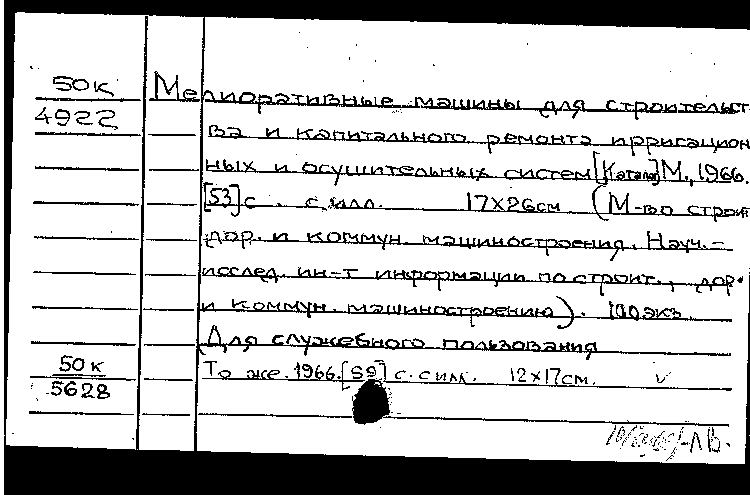 50к Мелиоративные машины для строительст
4922 ва и капитального ремонта ирригацион
ных и осушительных систем [Каталог] М., 1966.
[53] с. с илл. 17х26см (М-во строит
дор. и коммун. машиностроения. Науч.-
исслед. ин-т информации по строит., дор.
и коммун. машиностроению). 100 экз.
Для служебного пользования
50к То же. 1966. [59] с. с илл. 12х17см. ✓
5628
-ЛВ.